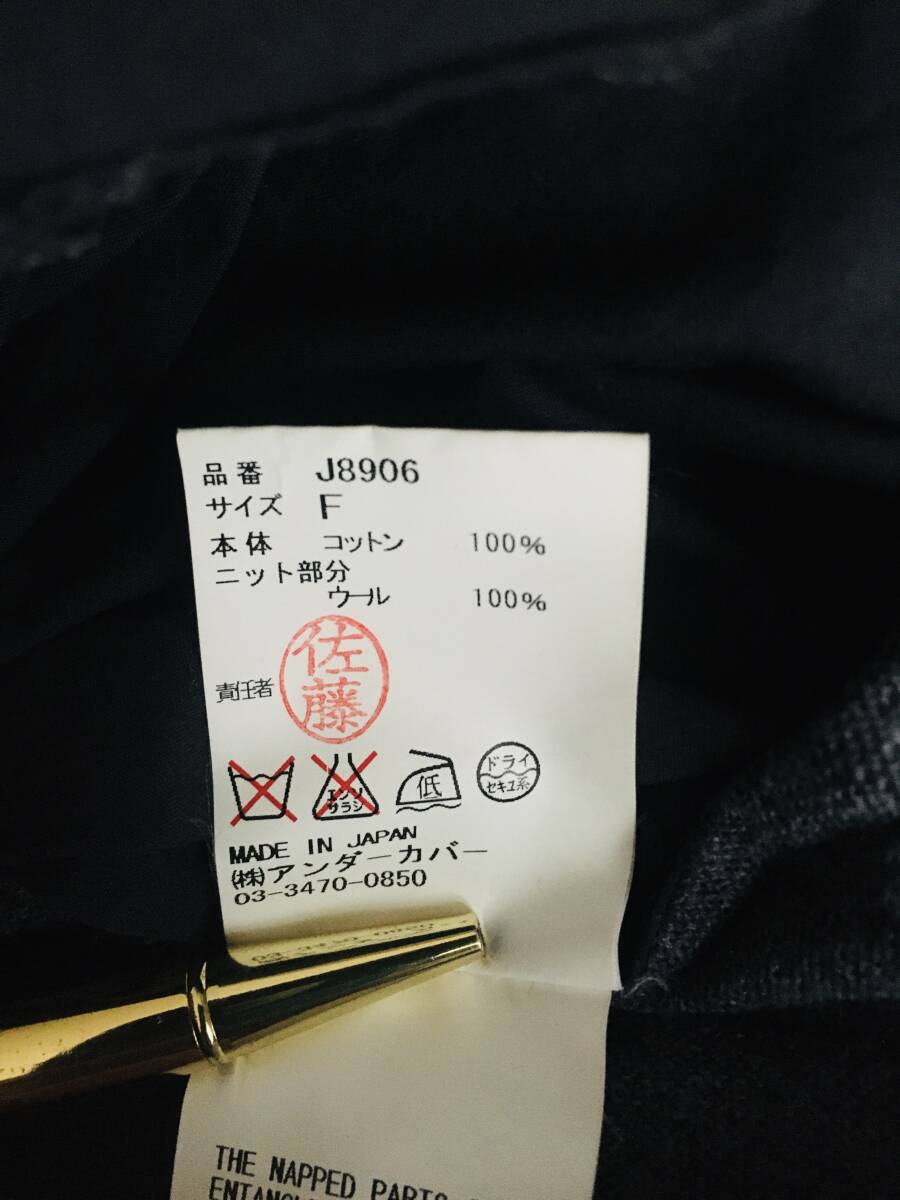 品番 J8906
サイズ F
本体 コットン 100%
ニット部分
ウール 100%
責任者 佐藤
エンソ
サラシ
低
ドライ
セキユ系
MADE IN JAPAN
(株)アンダーカバー
03-3470-0850
THE NAPPED PARTS